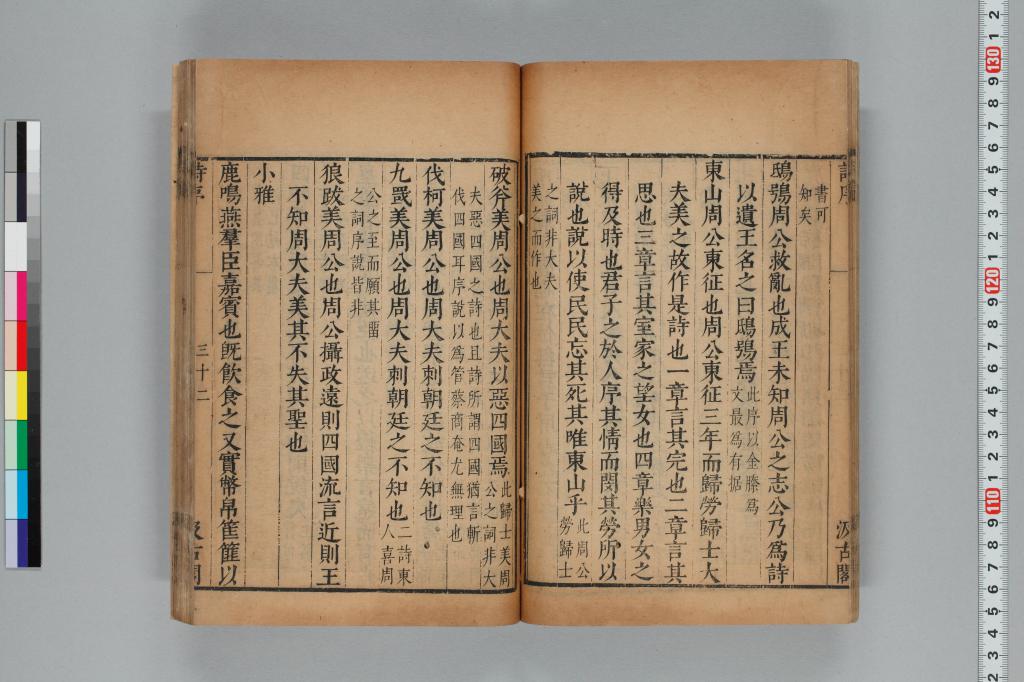 詩序
汲古閣
書可
知矣
鴟鴞周公救亂也成王未知周公之志公乃爲詩
以遺王名之曰鴟鴞焉
此序以金縢爲
文最爲有据
東山周公東征也周公東征三年而歸勞歸士大
夫美之故作是詩也一章言其完也二章言其
思也三章言其室家之望女也四章樂男女之
得及時也君子之於人序其情而閔其勞所以
說也說以使民民忘其死其唯東山乎
此周公
勞歸士
之詞非大夫
美之而作也
破斧美周公也周大夫以惡四國焉
此歸士美周
公之詞非大
夫惡四國之詩也且詩所謂四國猶言斬
伐四國耳序說以爲管蔡商奄尤無理也
伐柯美周公也周大夫刺朝廷之不知也
九罭美周公也周大夫刺朝廷之不知也
二詩東
人喜周
公之至而願其畱
之詞序說皆非
狼跋美周公也周公攝政遠則四國流言近則王
不知周大夫美其不失其聖也
小雅
鹿鳴燕羣臣嘉賓也旣飲食之又實幣帛筐篚以
詩序
三十二
汲古閣
2 1 130 9 8 7 6 5 4 3 2 1 120 9 8 7 6 5 4 3 2 1 110 9 8 7 6 5 4 3 2